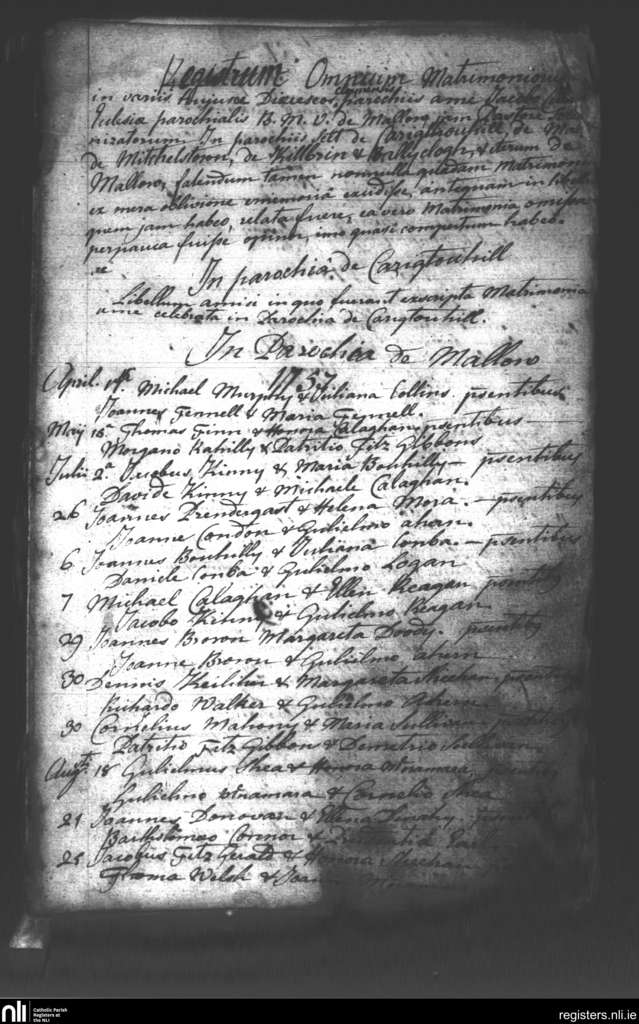 Registrum Omnium Matrimoniorum
in variis hujusce Dioeceseos Cloynensis parochiis a me Jacobo
Eclesia parochialis B. M. V. de Mallow jam Pastore
nizatorum. In parochiis scilt de Carigtouhill, de
de Mitchelstown, de Killbrin & Ballyclogh, & iterum de
Mallow, fatendum tamen nonnulla quadam Matrimon
ex mera oblivione e memoriâ excidisse, antequam in libell
quem jam habeo, relata fuere, ea vero Matrimonia omissa
perpauca fuisse opinor, imo quasi compertum habeo.
In parochiâ de Carigtouhill
Libellum amisi in quo fuerant exscripta Matrimonia
a me celebrata in Parochia de Carigtouhill.
In Parochia de Mallow
1757
April. Michael Murphy & Juliana Collins psentibus
Joannes Fennell & Maria Fennell.
Maij 15 Thomas Finn & Honora Calaghan psentibus
Morgano Rahilly & Patritio Fitz Gibbons
Julii 2 Jacobus Kinny & Maria Bouhilly — psentibus
Davide Kinny & Michaele Calaghan.
26 Joannes Prendergast & Helena Mora. — psentibus
Joanne Condon & Gulielmo ahern.
6 Joannes Bouhilly & Juliana Conba. — psentibus
Daniele Conba & Gulielmo Logan
7 Michael Calaghan & Ellen Reagan psentibus
Jacobo Kinny & Gulielmo Reagan
29 Joannes Brown Margareta Doody. psentibus
Joanne Brown & Gulielmo ahern
30 Dennis & Margareta Sheehan psentibus
Richardo Walker & Gulielmo Ahern
30 Cornelius Mahony & Maria Sullivan psentibus
Patritio Fitz Gibbons & Demetrio Sullivan
Augti 18 Gulielmus Shea & Honora psentibus
Gulielmo & Cornelio Shea
21 Joannes Donovan & Ellena
Bartholomeo Connor &
25 Jacobus Fitz Gerald & Honora Sheehan
Welsh &
nli
Catholic Parish
Registers at
the NLI
registers.nli.ie